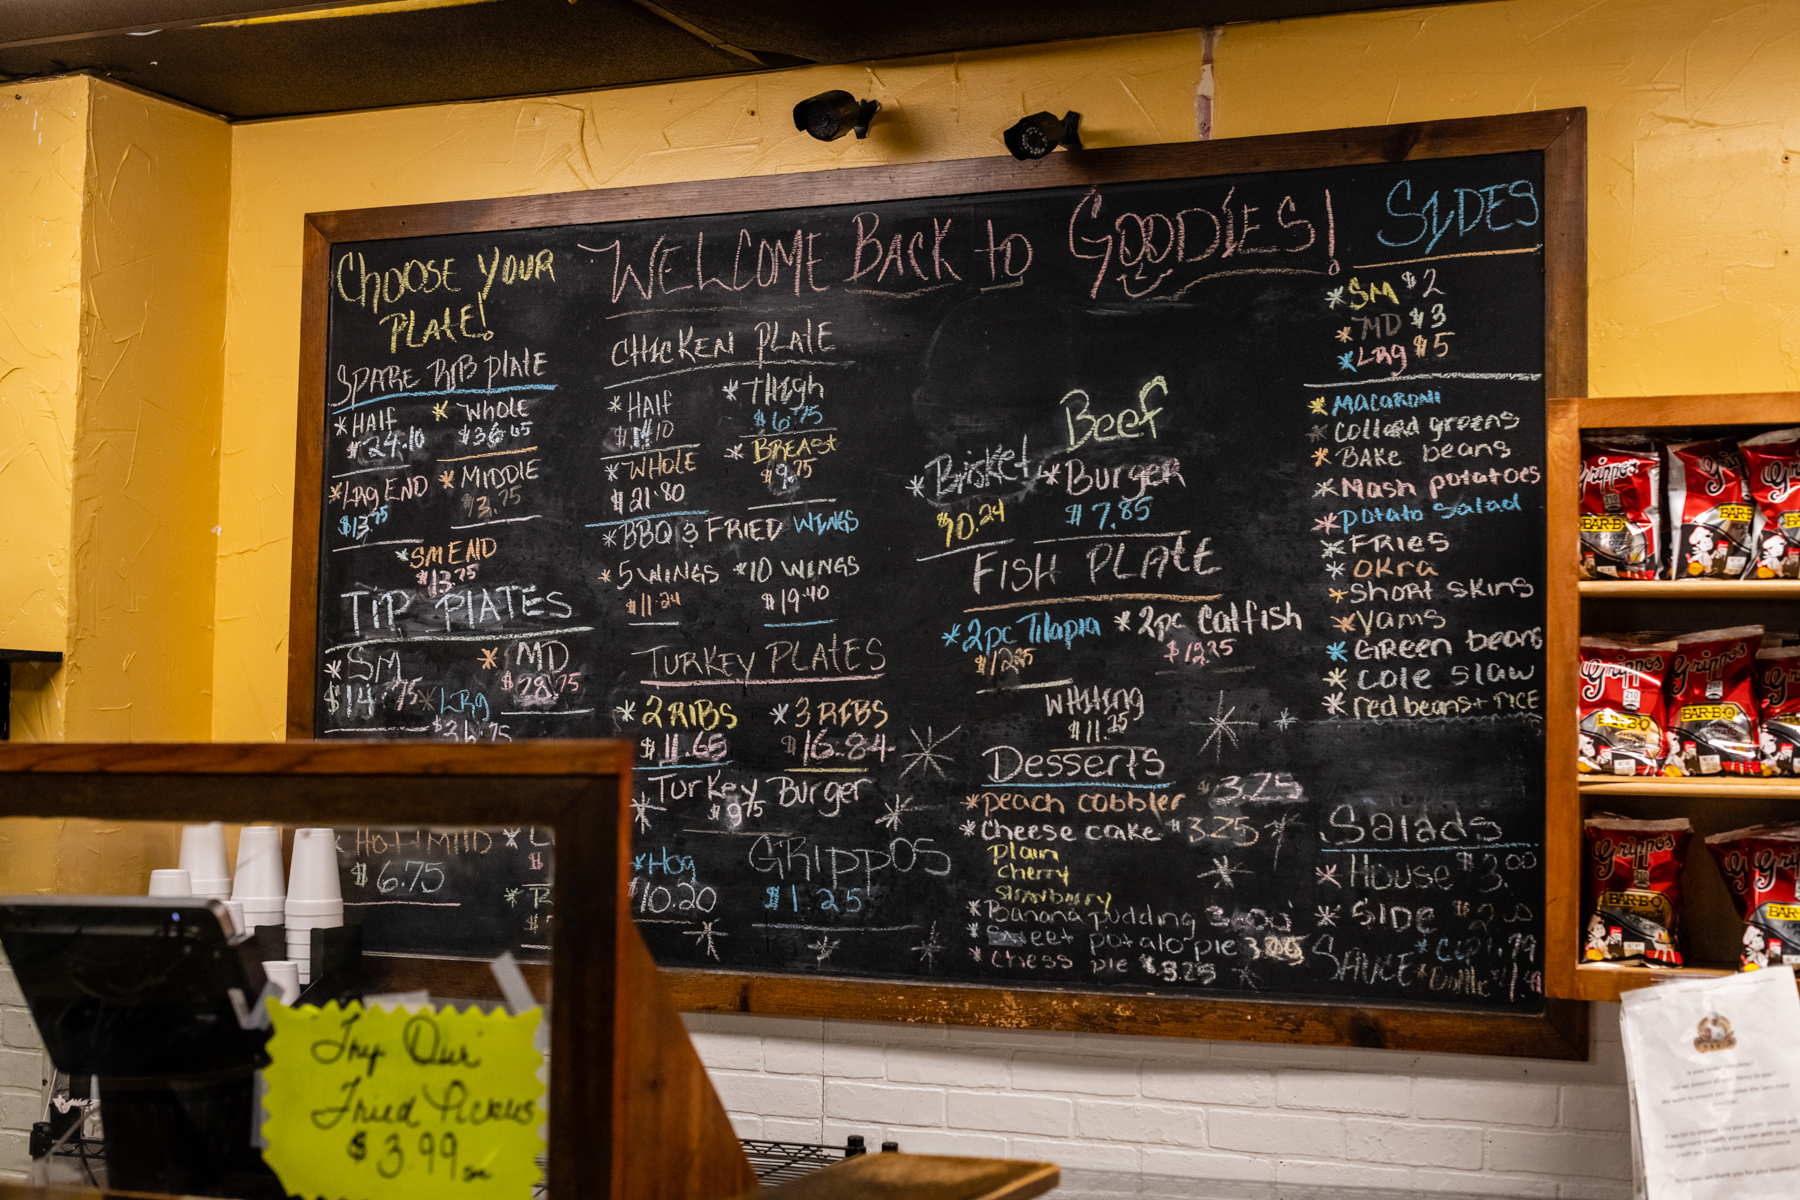 WELCOME BACK to GOODIES!
CHOOSE YOUR
PLAtE!
SPARE RIB PLAtE
*HALF * WHOLE
$24.10 $36.65
*LRg END * MIDDLE
$13.75 $13.75
*SM END
$13.75
TIP PLATES
*SM * MD
$14.75 $28.75
*LRg
*Hot Mild
$6.75
CHICKEN PLATE
*HAlf *THigh
$6.75
*WHOLE *BREASt
$21.80 $9.75
*BBQ & FRIED WINGS
*5 WINGS *10 WINGS
$11.24 $19.40
TURKEY PLATES
*2 RIBS *3 RIBS
$11.65 $16.84
Turkey Burger
$9.75
*Hog GRIPPOS
$10.20 $1.25
Beef
*Brisket *Burger
$10.24 $7.85
FISH PLAtE
*2pc Tilapia *2pc Catfish
$12.25 $12.25
Whiting
$11.25
Desserts
*peach cobbler $3.25
*Cheese cake $3.25
Plain
Cherry
Strawberry
*Banana pudding 3.00
*Sweet potato pie
*Chess pie $3.25
SIDES
*SM $2
*MD $3
*LRg $5
*MACARONI
*Collard greens
*BAKE beans
*Mash potatoes
*potato salad
*FRies
*OKra
*Short skins
*Yams
*GReen beans
*Cole slaw
*red beans + rice
Salads
*HOUSE $3.00
*SIDE $2.00
SAUCE *Cup 1.99
*Bottle
Try Our
Fried Pickles
$3.99
Grippo's
BAR-B-Q
Grippo's
BAR-B-Q
Grippo's
BAR-B-Q